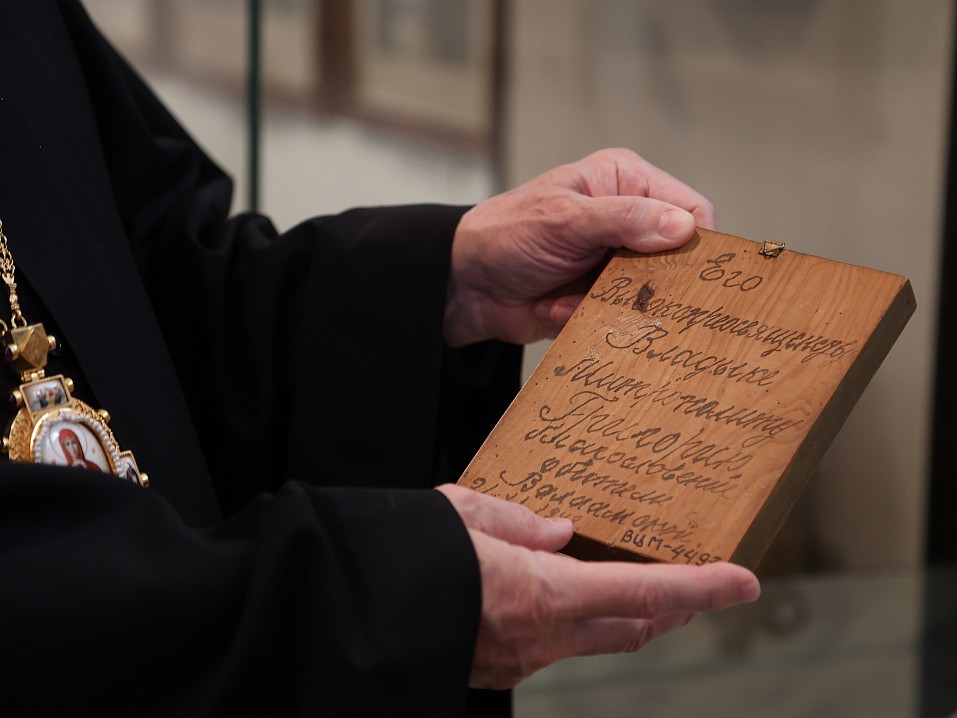 Его
Высокопреосвященству
Владыке
Митрополиту
Григорию
Благословение
обители
Валаамской
ВЦМ-449